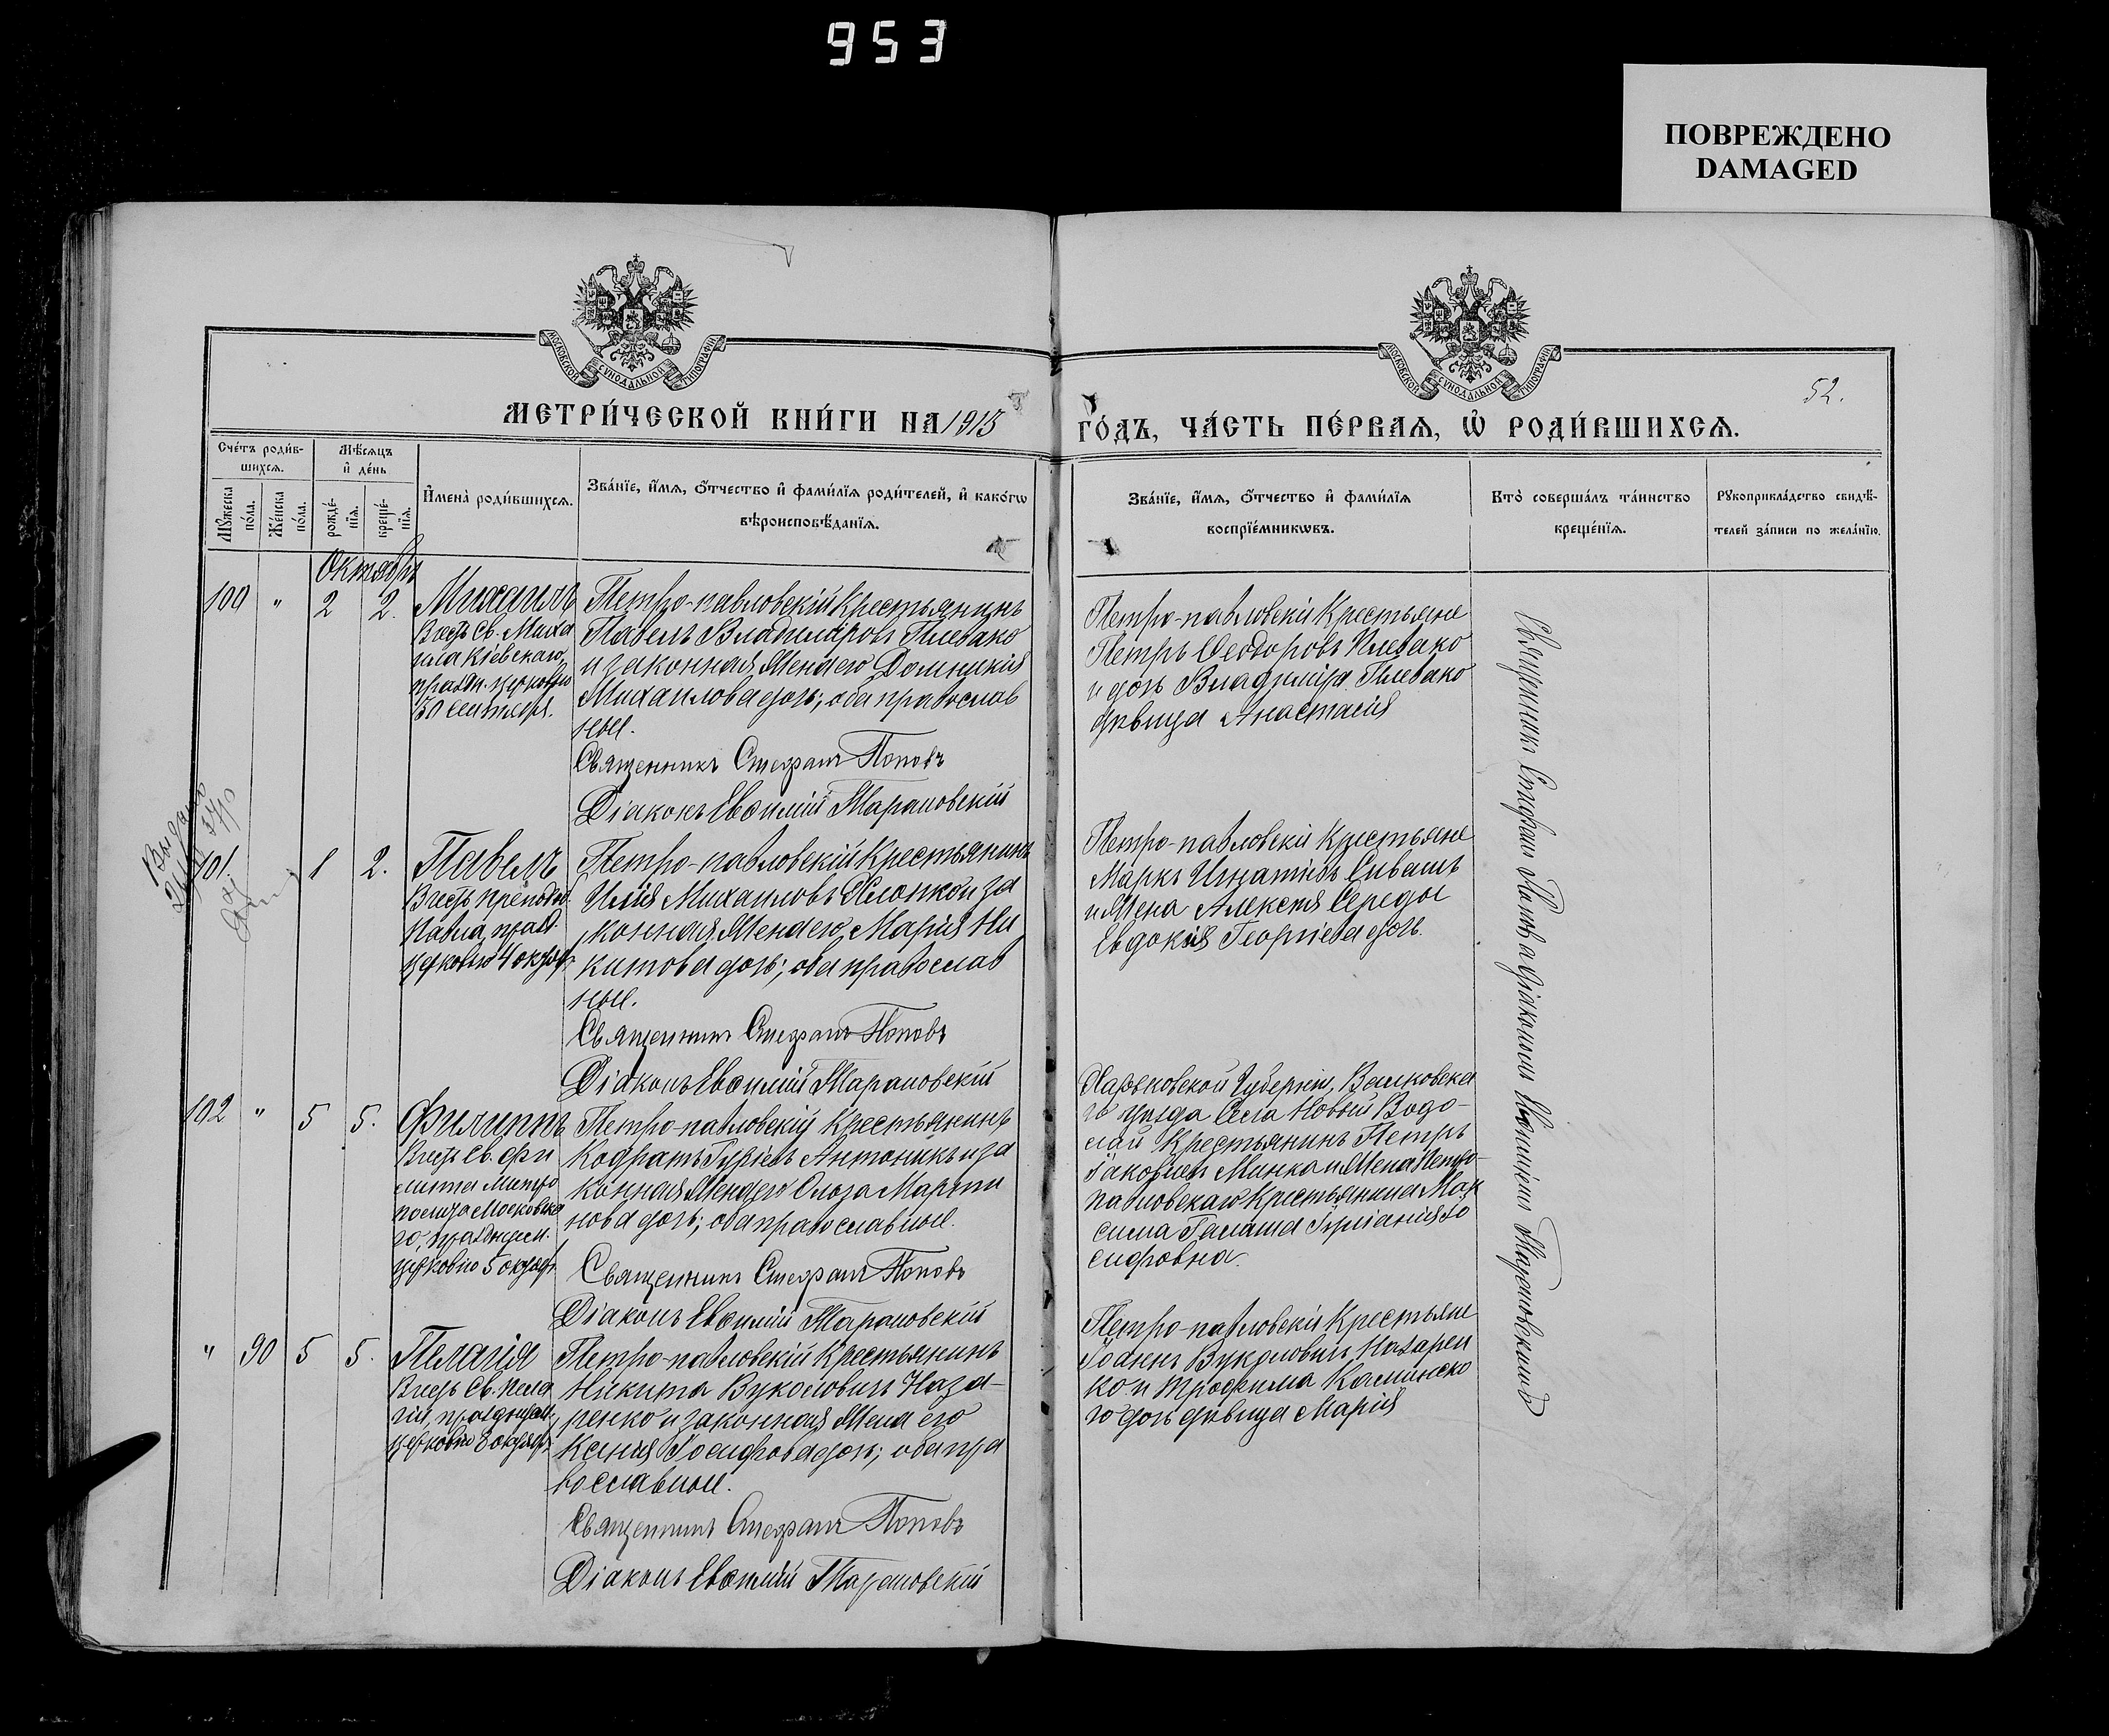 953
ПОВРЕЖДЕНО
DAMAGED
МОСКОВСКОЙ СѴНОДАЛЬНОЙ ТИПОГРАФІИ
МОСКОВСКОЙ СѴНОДАЛЬНОЙ ТИПОГРАФІИ
52.
МЕТРИ́ЧЕСКОЙ КНИ́ГИ НА 1913
ГО́ДЪ, ЧА́СТЬ ПЕ́РВАЯ, Ѡ҆ РОДИ́ВШИХСЯ.
Сче́тъ роди́в-
шихся.
Мѣ́сяцъ
и҆ де́нь
Мꙋ́жеска по́ла.
Же́нска по́ла.
рожде́-
нїя.
креще́-
нїя.
И҆мена̀ роди́вшихся.
Зва́нїе, и҆́мя, ѻ҆́тчество и҆ фами́лїя роди́телей, и҆ како́гѡ
вѣроисповѣ́данїя.
Зва́нїе, и҆́мя, ѻ҆́тчество и҆ фами́лїя
воспрїе́мникѡвъ.
Кто̀ соверша́лъ та́инство
креще́нїя.
Рꙋкоприкла́дство свидѣ́-
телей за́писи по жела́нїю.
Октябрь
100 " 2 2. Михаилъ
В честь Св. Миха
ила Кіевскаго,
праздн. церковію
30 Сентября.
Петро-павловскій Крестьянинъ
Павелъ Владиміровъ Плевако
и законная жена его Домникія
Михаилова дочь; оба православ
ные.
Священникъ Стефанъ Поповъ
Діаконъ Евѳимій Тарановскій
Петро-павловскіе Крестьяне
Петръ Ѳеодоровъ Плевако
и дочь Владиміра Плевако
дѣвица Анастасія
Священникъ Стефанъ Поповъ с діакономъ Евѳиміемъ Тарановскимъ
Выдано
101. 1 2. Павелъ
В честь преподоб.
Павла, празд.
церковію 4 октяб.
Петро-павловскій Крестьянинъ
Илія Михаиловъ Хлопкои за
конная жена его Марія Ни
китова дочь; оба православ
ные.
Священникъ Стефанъ Поповъ
Діаконъ Евѳимій Тарановскій
Петро-павловскіе Крестьяне
Маркъ Игнатіевъ Сивашъ
и жена Алексѣя Середы
Евдокія Георгіева дочь.
102 " 5 5. Филиппъ
В честь Св. Фи
липпа Митро
полита Московска
го, празднуем.
церковію 5 октяб.
Петро-павловскій Крестьянинъ
Кодратъ Гуріевъ Антоникъ и за
конная жена его Ольга Марти
нова дочь; оба православные.
Священникъ Стефанъ Поповъ
Діаконъ Евѳимій Тарановскій
Харьковской Губерніи, Валковска
го уѣзда Села Новой Водо-
лаги Крестьянинъ Петръ
Іаковлевъ Минка и жена Петро-
павловскаго Крестьянина Мак
сима Галаша Іуліанія Іо
сифовна.
" 90 5 5. Пелагія
В честь Св. Пела
гіи, празднуем.
церковію 8 октяб.
Петро-павловскій Крестьянинъ
Никита Вуколовичъ Наза-
ренко и законная жена его
Ксенія Іосифова дочь; оба пра
вославные.
Священникъ Стефанъ Поповъ
Діаконъ Евѳимій Тарановскій
Петро-павловскіе Крестьяне
Іоаннъ Вуколовичъ Назарен
ко и Трофима Каминско
го дочь дѣвица Марія